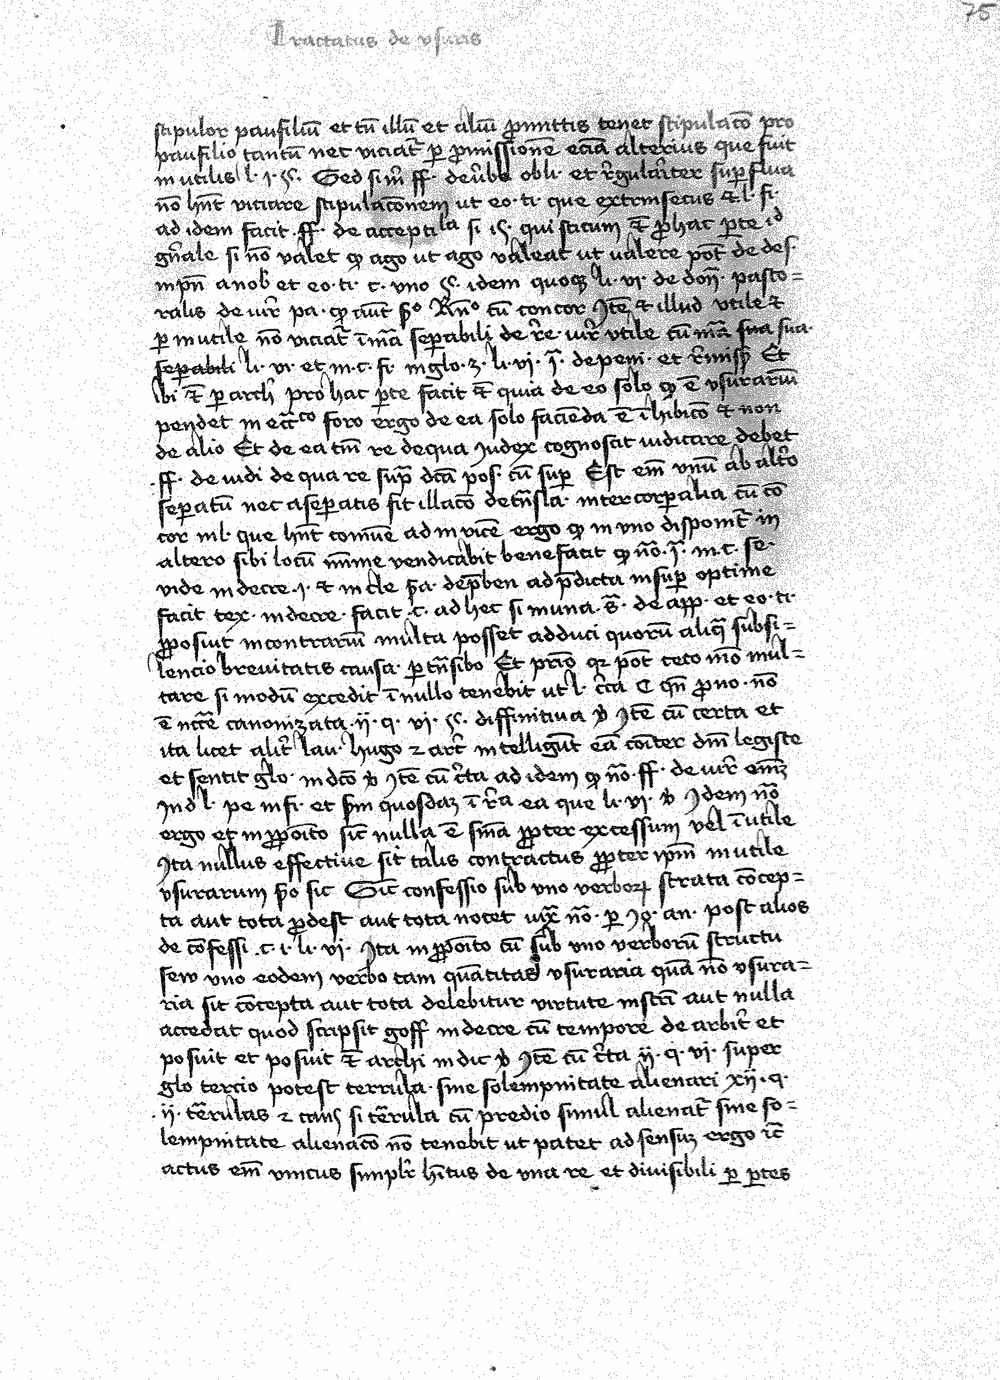 75
Tractatus de vsuris
stipulor panfiliū et tū illū et aliū ꝓmittis tenet stipulacō pro
panfilio tantū nec viciat̄ ꝑ ꝓmissionē eciā alterius que fuit
in utilis l· j· ꝯ. Sed si in̄ ff. de v̄bo obli· et r̄gulariter suꝑflua
nō hn̄t viciare stipulacōnem ut eo· ti· que extrinsecus & l· fi·
ad idem facit .ff. de acceptila si is· qui sticum & ꝓ hac ꝑte id
gn̄ale si nō valet ꝙ ago ut ago valeat ut valere pōt de des
inpn̄ a nob et eo· ti· c. vno ꝯ. idem quoqꝫ li· vi· de don̄. pasto=
ralis de iur̄ pa· ꝙ cū concor Itē & illud vtile &
ꝑ inutile nō viciat̄ ī mā seꝑabili de r̄e· iur̄ vtile cū mā sua sua·
seꝑabili li· vi· et in· c. fi· in glo· 3· li· vi· de peni· et r̄missꝭ Et
ibi & ꝑ arch̄ pro hac ꝑte facit & quia de eo solo ꝙ ē vsurariū
pendet in ecc̄co foro ergo de ea solo facienda ē īhibicō & non
de alio Et de ea tm̄ re de qua Iudex cognoscit iudicare debet
.ff. de iudi de qua re sup̄ dc̄a pos· cū suꝑ Est em̄ vnū ab alt̄o
seꝑatū nec a seꝑatis fit illacō inter corꝑalia cū cō
cor in l· que hn̄t comūe ad in vicē ergo ꝙ in vno disponit̄ in
altero sibi locū mīme vendicabit benefacit ꝙ nō· in· c. se·
vide in decre· j· & in cle p̄a· de p̄ben ad p̄dicta insuꝑ optime
facit tex· in decre· facit .c. ad hec si in una· de app· et eo· ti·
ꝓposuit in contrariū multa posset adduci quorū aliq̄ sub si=
lencio breuitatis causa· ꝑ tn̄sibo Et prīo qꝛ pōt ceto mō mul=
tare si modū excedit ī nullo tenebit ut l· c̄ca C qn̄ ꝓuo· nō
ē nc̄e canonizata .ij. q. vi· ꝯ. diffinitiua v̄ Itē cū certa et
ita licet alit̄ lau· hugo & arc̄ intelligūt eā cōiter dn̄i legiste
et sentit glo· in dc̄o v̄ Itē cū c̄ta ad idem ꝙ nō .ff. de iur̄ em̄ꝫ
In d l· pe in fi· et p̄m quosdaꝫ ī r̄a ea que li· vi· v̄ Idem nō
ergo et in ꝓpōito sic̄ nulla ē sn̄ia ꝓpter excessum vel īutile
Ita nullus effectiue sit talis contractus ꝓpter ip̄m inutile
vsurarum p̄o sic Sic̄ confessio sub vno verboꝝ strata cōcep=
ta aut tota ꝓdest aut tota nocet iuxᵃ nō· ꝑ Io. an. post alios
de cōfessi .c. i. li. vi· Ita in ꝓpōito cū sub vno verborū structu
seu vno eodem verbo tam quātitas vsuraria quā nō vsura=
ria sit cōcepta aut tota delebitur virtute instrī aut nulla
accedat quod scripsit goff in decre cū tempore de arbit̄ et
posuit et posuit & archi in dic v̄ Itē cū c̄ta ij. q. vi· super
glo tercio potest terrula· sine solempnitate alienari xij. q.
.ij. tērulas & caus̄ si tērula cū predio simul alienat̄ sine so=
lempnitate alienacō nō tenebit ut patet ad sensuꝫ ergo ic̄
actus em̄ vnicus simplr̄ hītus de vna re et diuisibili ꝑ ꝑtes